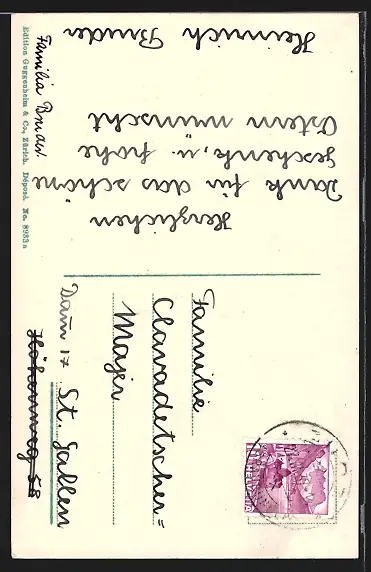 Herzlichen
Dank für das schöne
geschenk, u. frohe
Ostern wünscht
Heinrich Bruder
Familie Bruder.
Familie
Clavadetscher=
Majer
Dam 17 St. Gallen
Höhenweg 58
Edition Guggenheim & Co., Zürich. Déposé. No. 8983a
HELVETIA